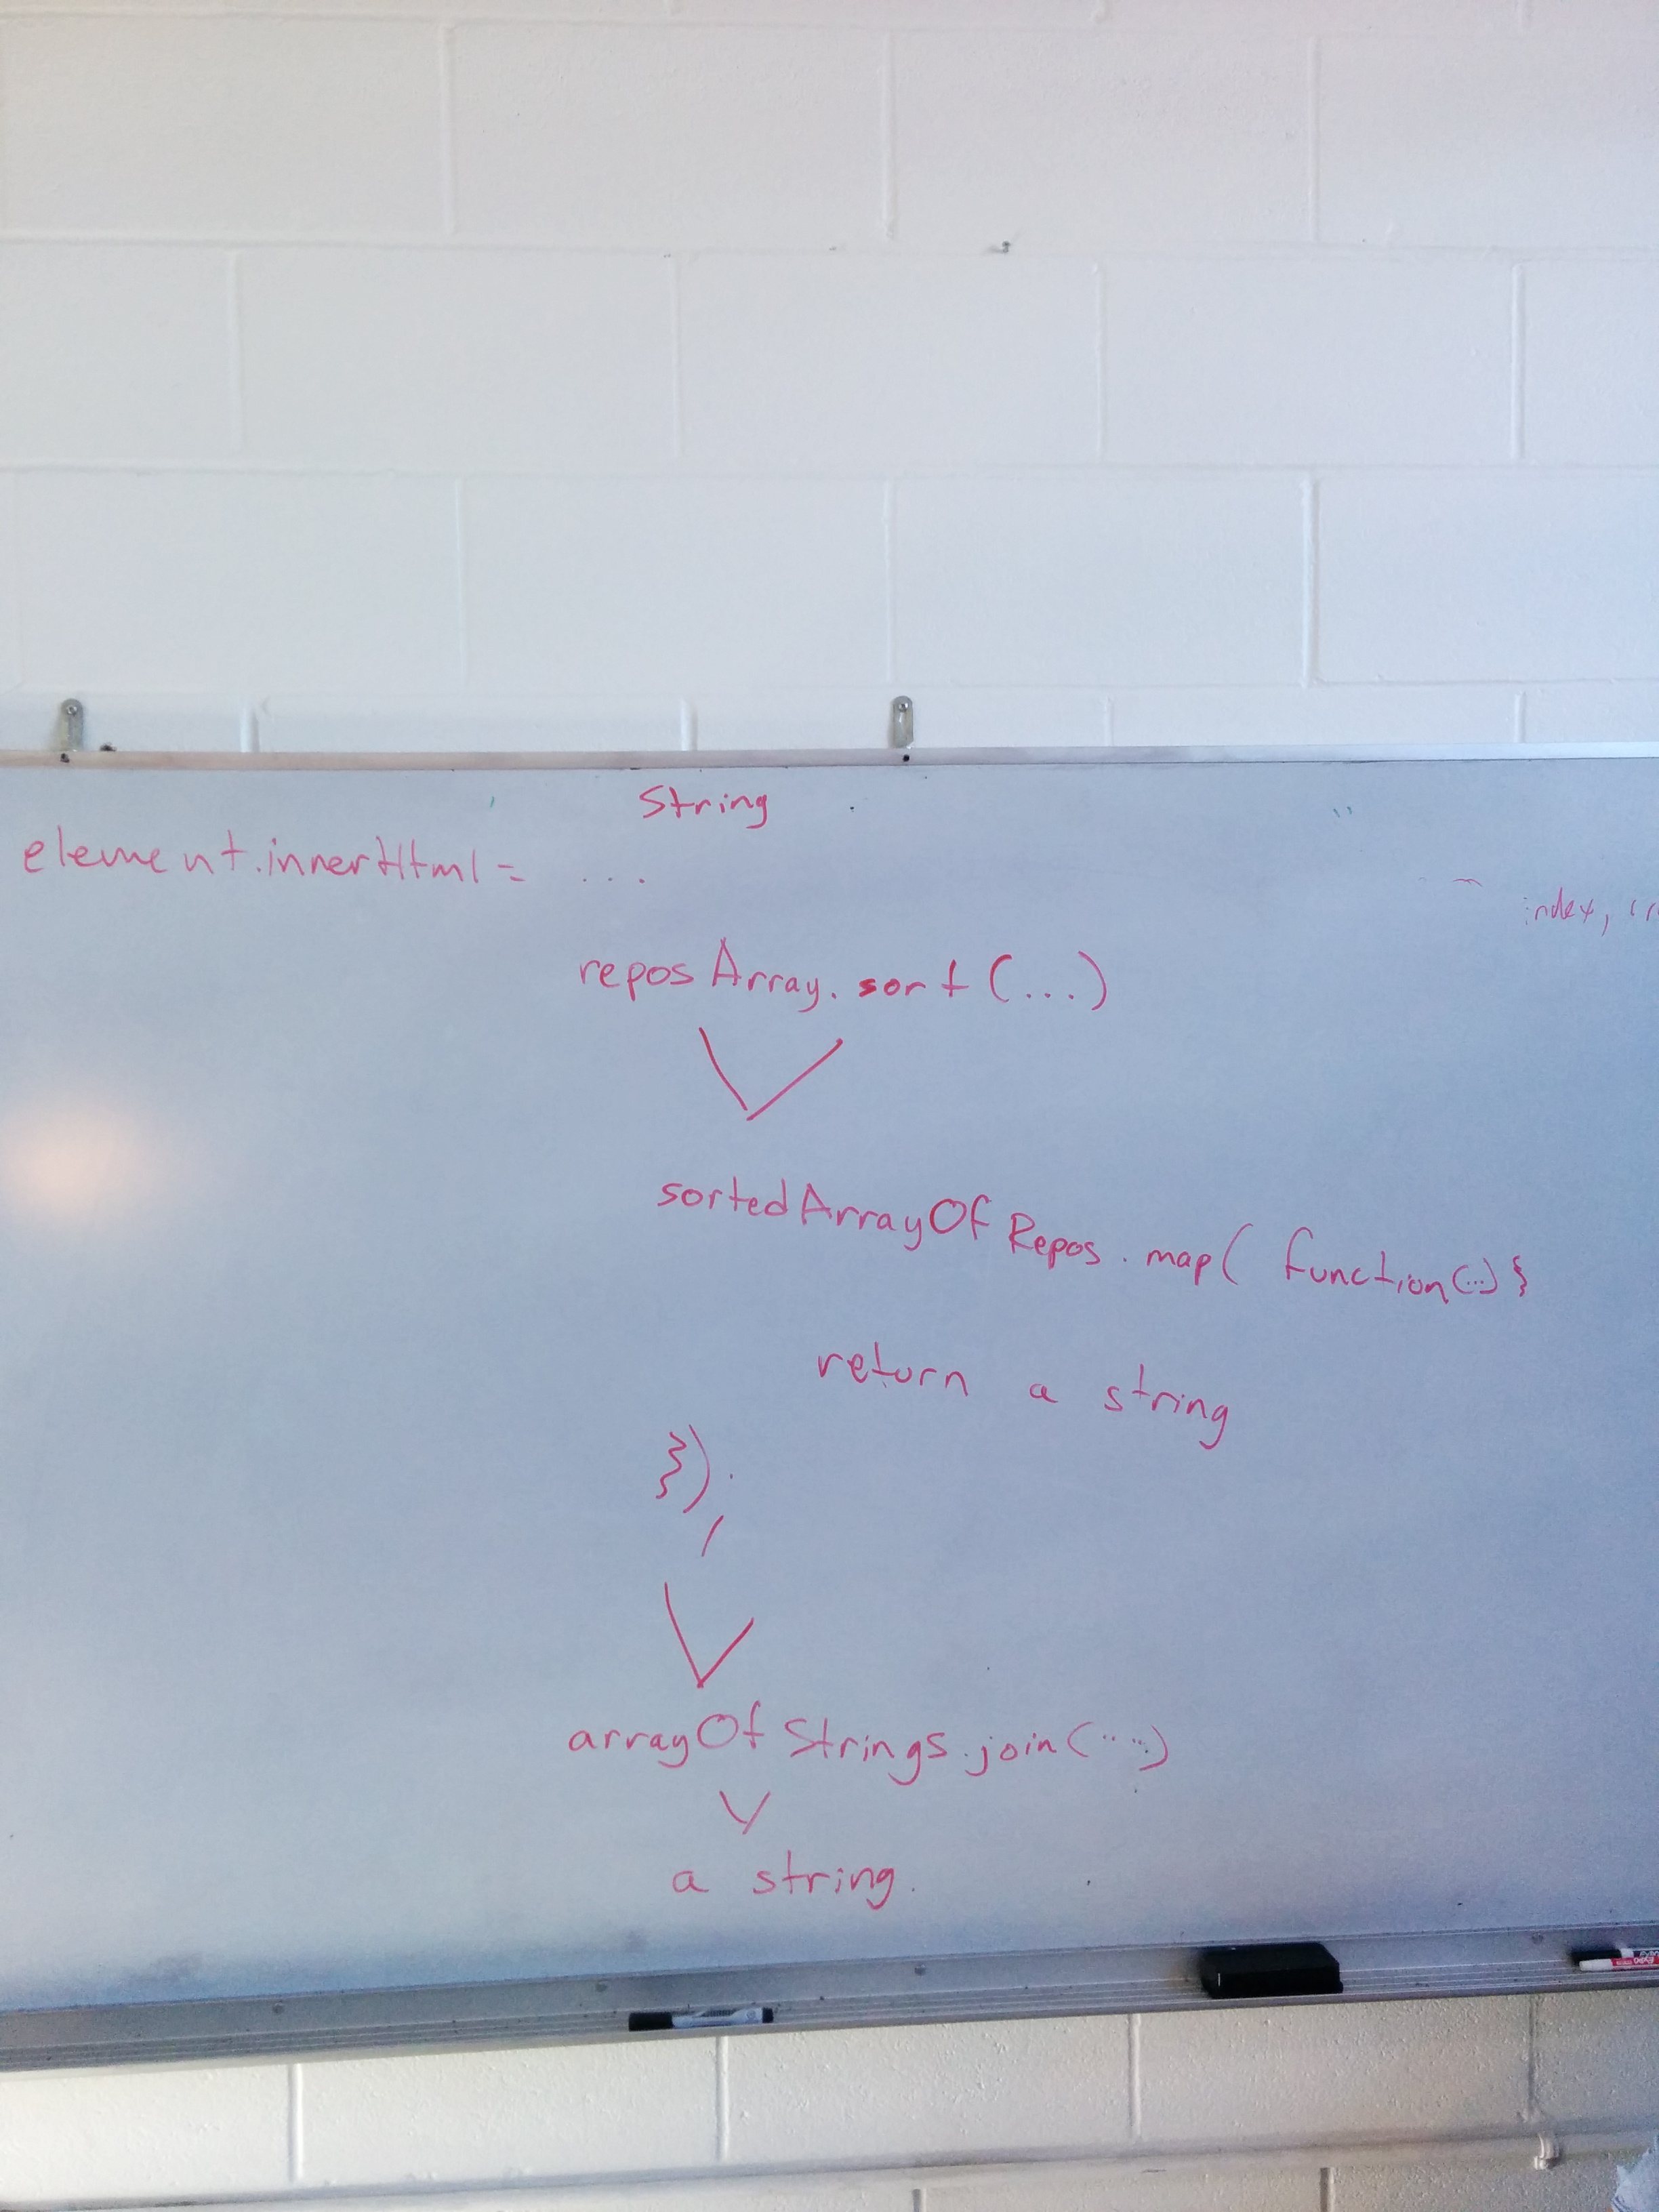 String
element.innerHtml = ...
index,
reposArray.sort(...)
sortedArrayOfRepos.map( function(...) }
return a string
});
arrayOfStrings.join(...)
a string.